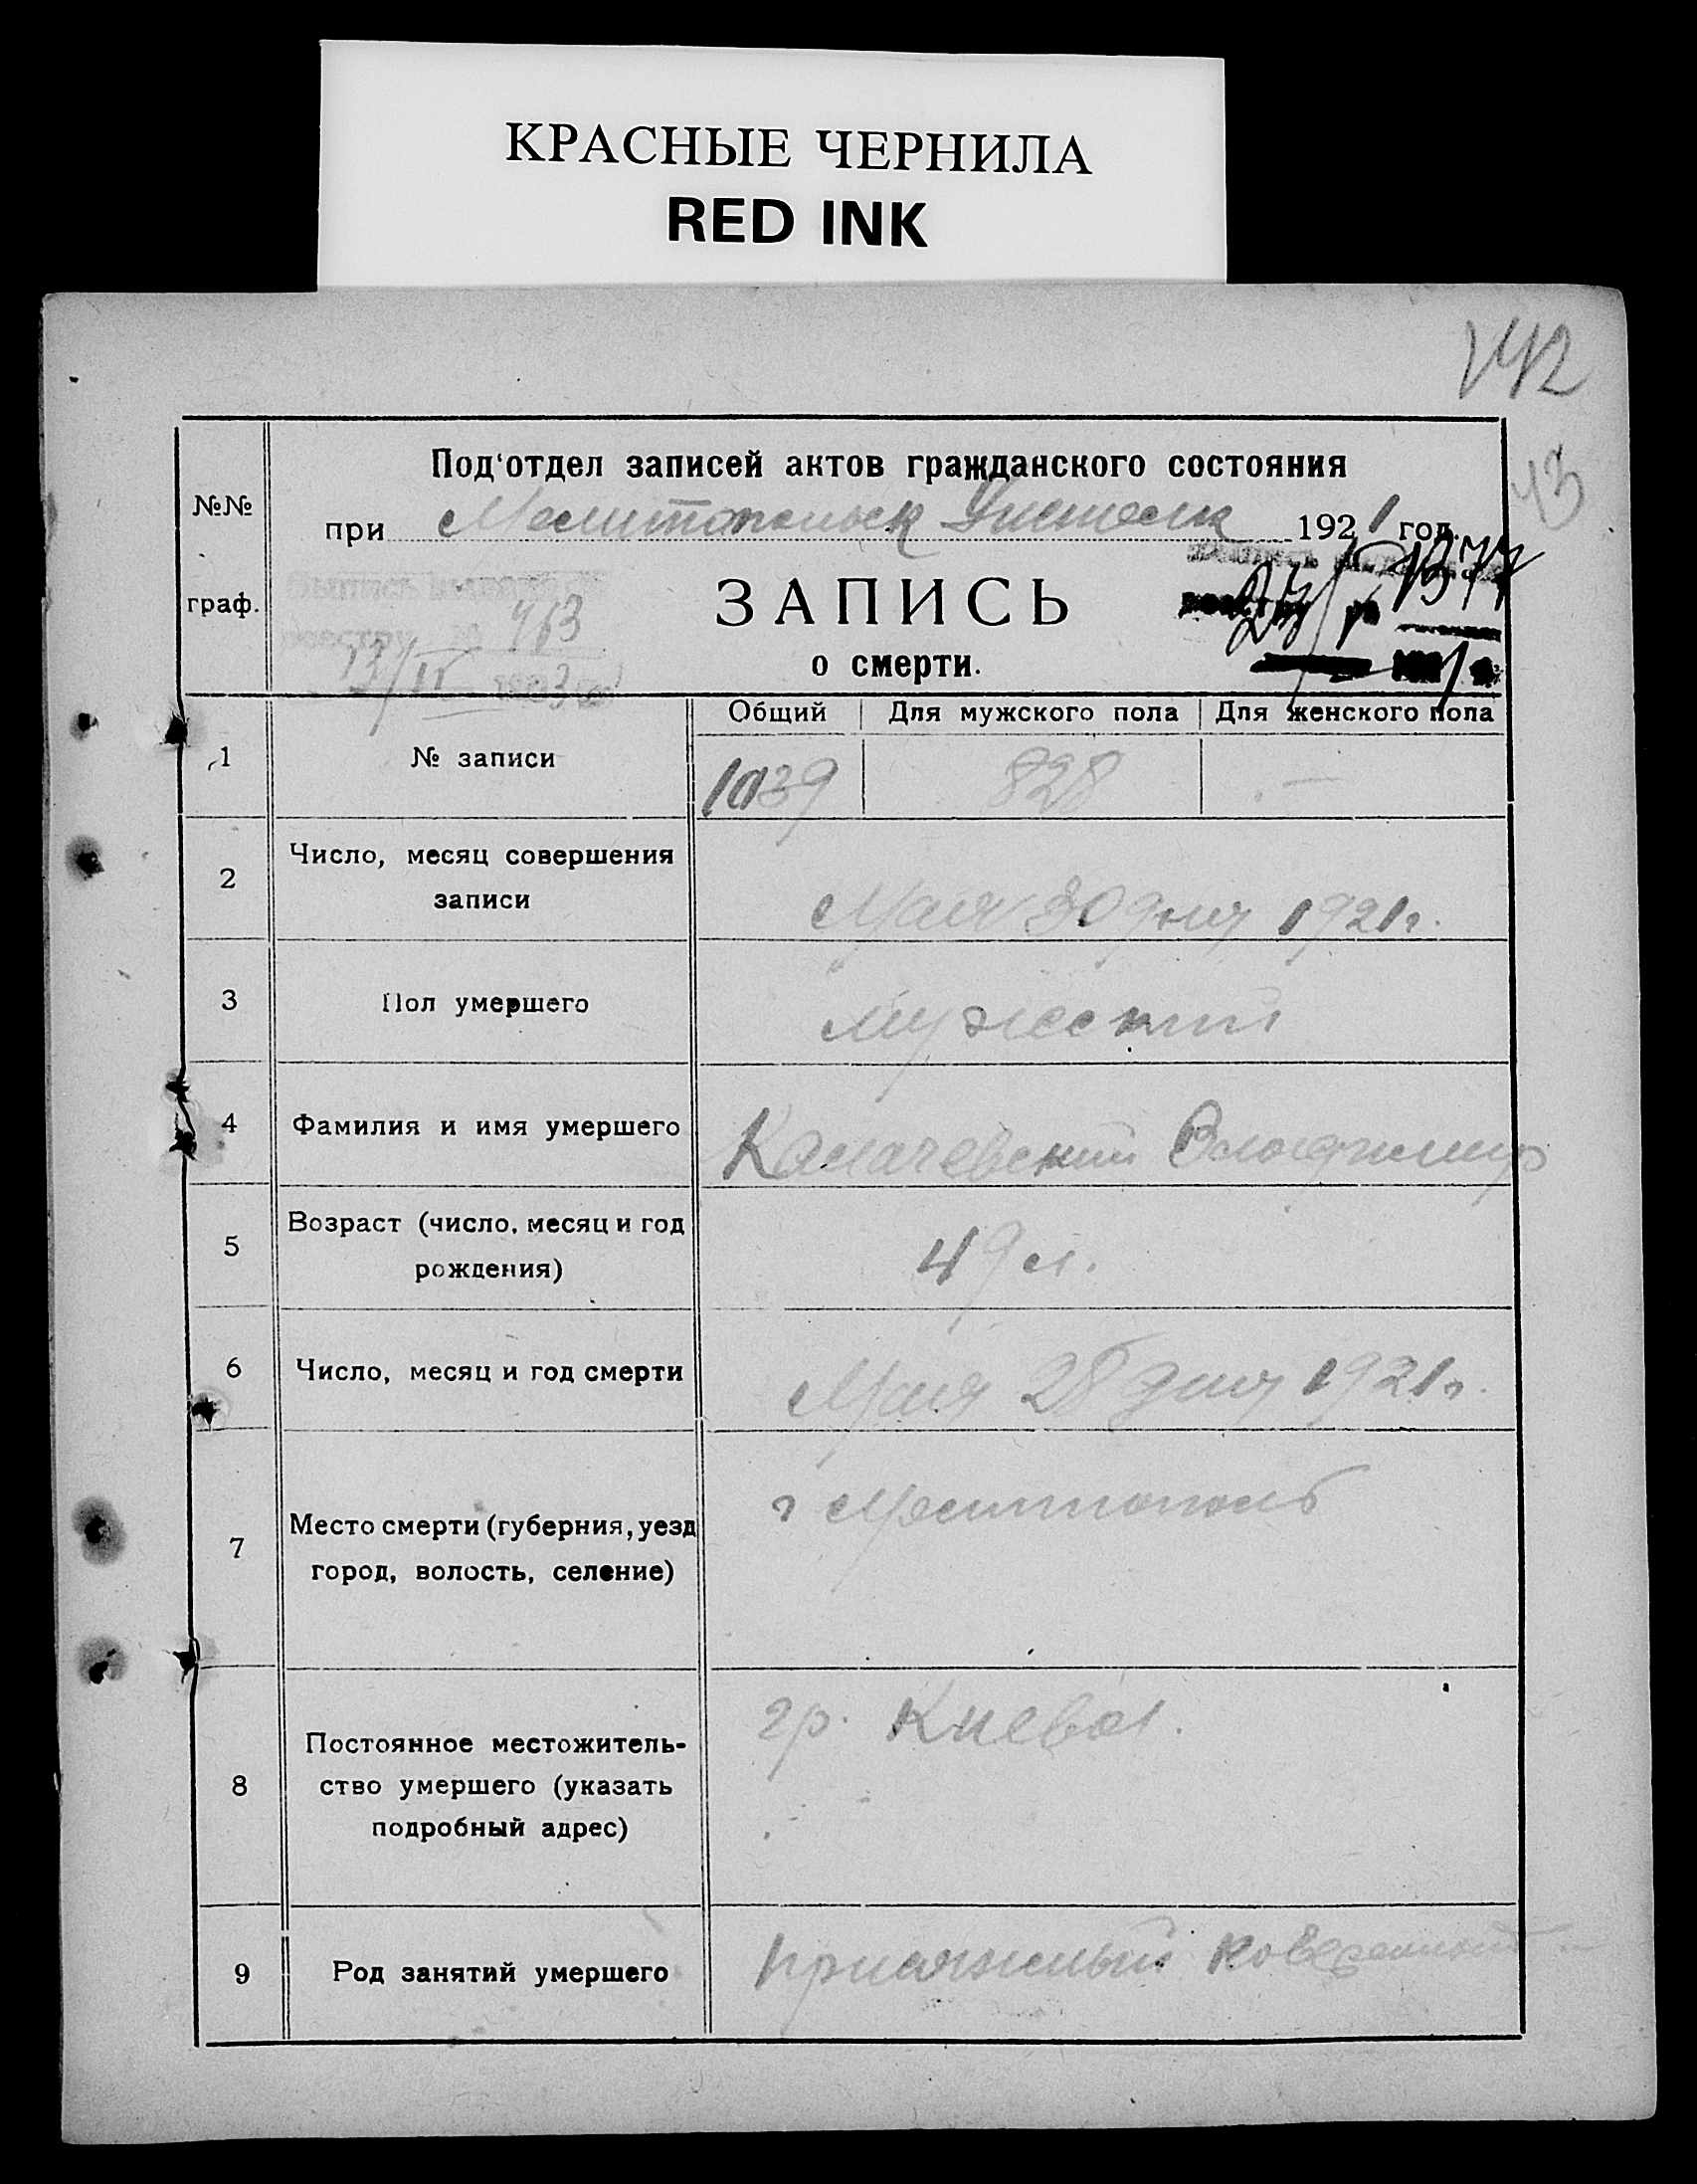 КРАСНЫЕ ЧЕРНИЛА
RED INK
142
43
Под'отдел записей актов гражданского состояния
№№
граф.
при Мелитопольск 1921 год.
ЗАПИСЬ
о смерти.
Выпись выдана
реестру № 463
13/II
1377
Общий Для мужского пола Для женского пола
1 № записи 1039 828 —
2 Число, месяц совершения
записи
Мая 30 дня 1921 г.
3 Пол умершего мужской
4 Фамилия и имя умершего Калачевский Владимир
5 Возраст (число, месяц и год
рождения)
49 л.
6 Число, месяц и год смерти Мая 28 дня 1921 г.
г Мелитополь
7 Место смерти (губерния, уезд
город, волость, селение)
гр. Киева.
8 Постоянное местожитель-
ство умершего (указать
подробный адрес)
9 Род занятий умершего присяжный поверенный